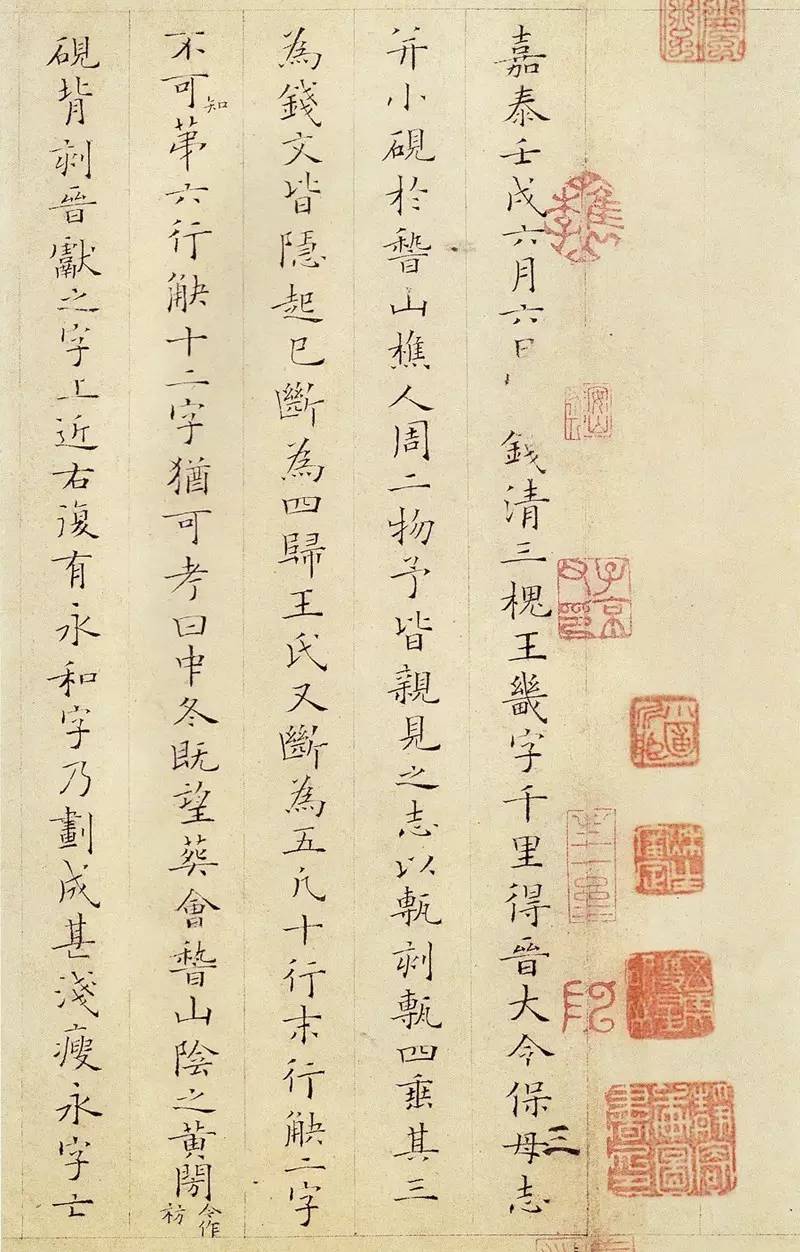 嘉泰壬戌六月六日錢清三槐王畿字千里得晉大令保母志三
并小硯於稽山樵人周二物予皆親見之志以甎刻甎四垂其三
為錢文皆隱起已斷為四歸王氏又斷為五凡十行末行缺二字
不可知第六行缺十二字猶可考曰中冬既望葬會稽山陰之黃閍今作祊
硯背刻晉獻之字上近右復有永和字乃劃成甚淺瘦永字亡